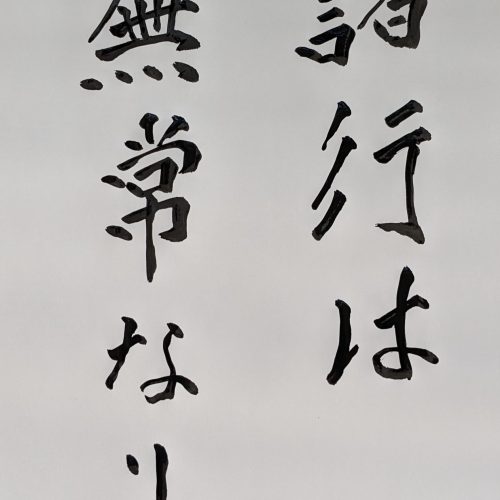 諸行は
無常なり